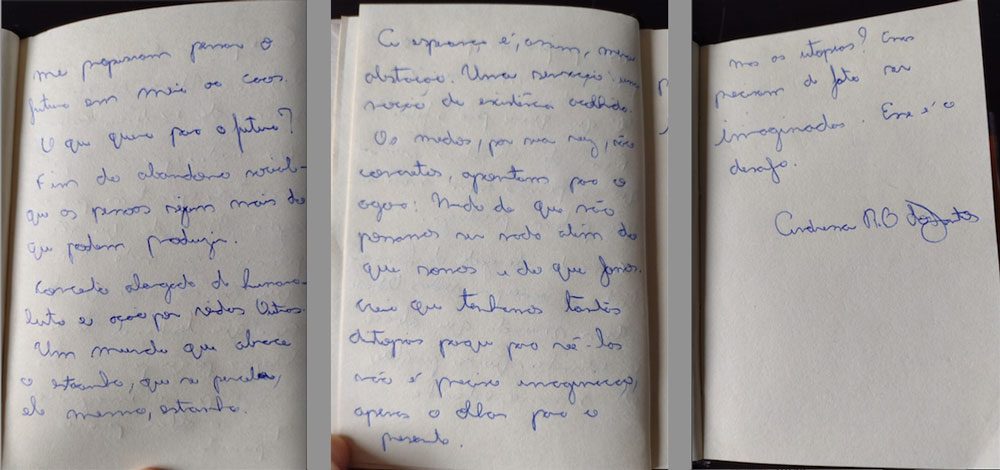 me propuseram pensar o
futuro em meio ao caos.
O que quero para o futuro?
Fim do abandono social -
que as pessoas sejam mais do
que podem produzir.
conceito alargado de humano.
luta e ação por vidas outras.
Um mundo que abrace
o estranho, que se perceba,
ele mesmo, estranho.
A esperança é, assim, uma
abstração. Uma sensação: uma
noção de existência acolhida.
Os medos, por sua vez, são
concretos, apontam para o
agora: Medo de que não
possamos ser nada além do
que somos e do que fomos.
creio que tenhamos tantas
distopias porque para vê-las
não é preciso imaginação,
apenas o olhar para o
presente.
mas as utopias? Essas
precisam de fato ser
imaginadas. Esse é o
desafio.
Andressa R.B dos Santos